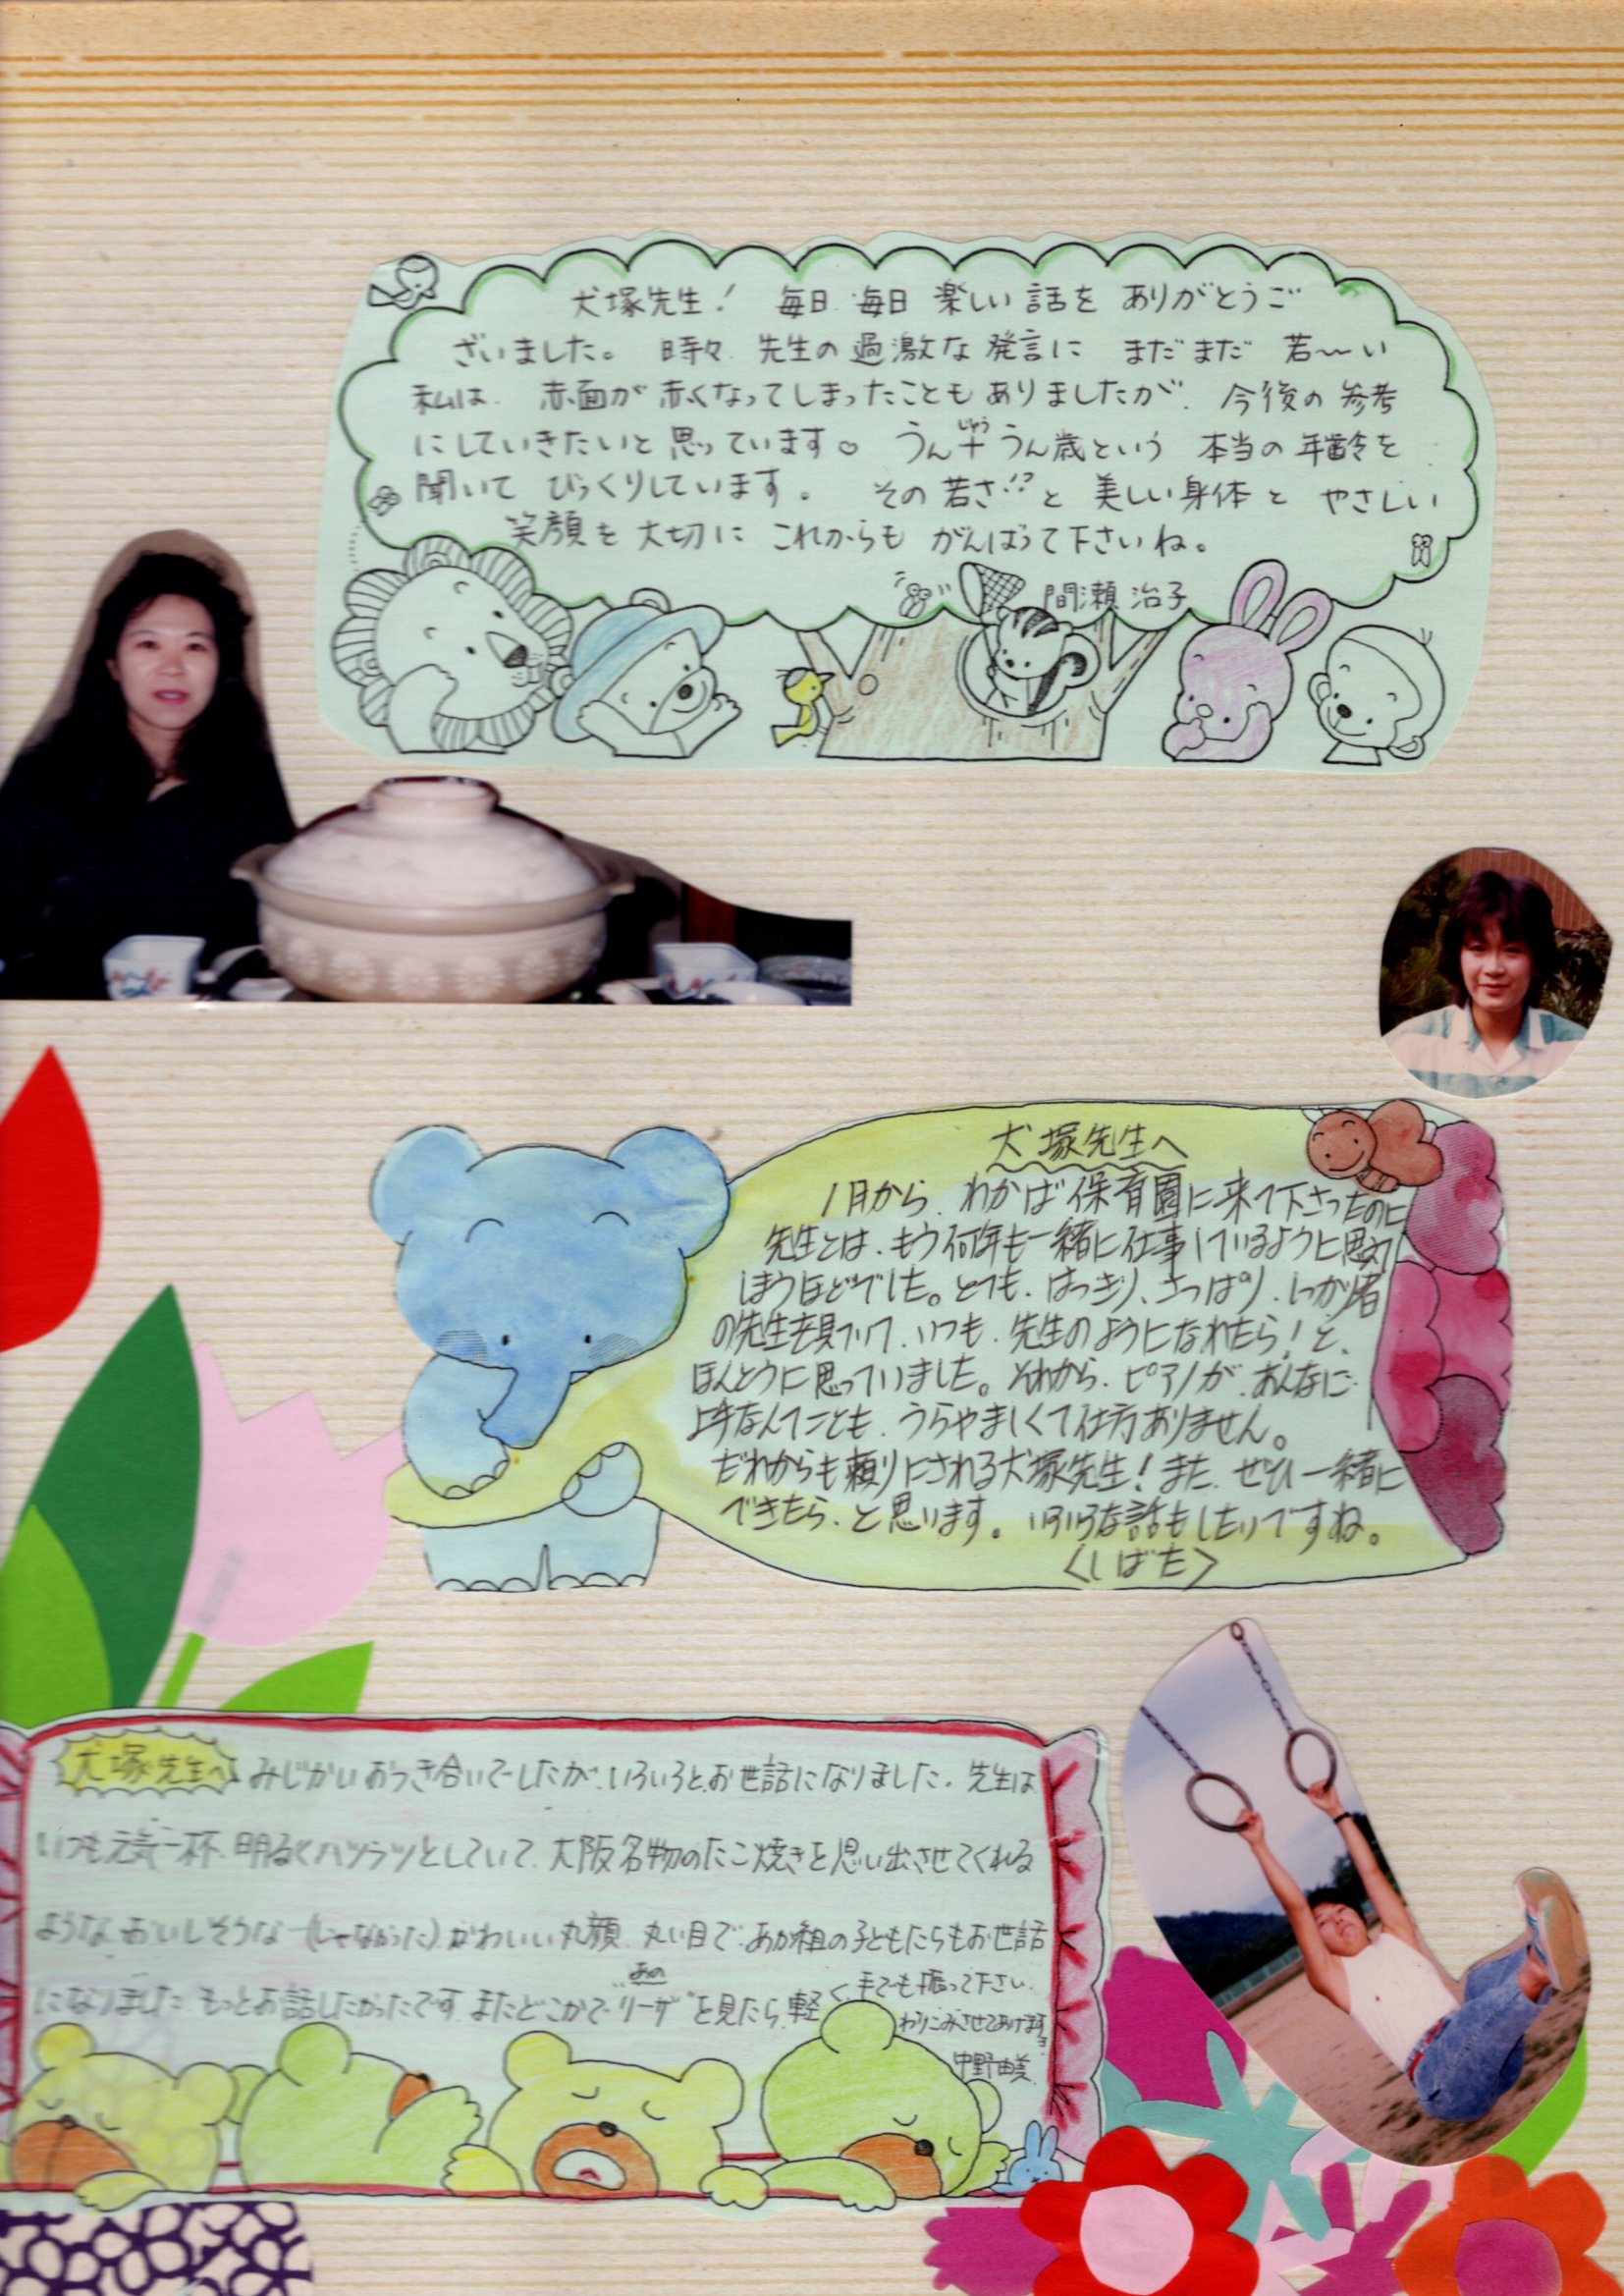 犬塚先生! 毎日 毎日 楽しい 話を ありがとうご
ざいました。 時々、先生の 過激な 発言に まだまだ 若〜い
私は、赤面が 赤くなってしまったことも ありましたが、今後の 参考
にしていきたいと 思っています♡ うん十うん歳という 本当の 年齢を
じゅう
聞いて びっくりしています。 その 若さ!?と 美しい 身体と やさしい
笑顔を 大切に これからも がんばって下さいね。
間瀬 治子
犬塚先生へ
1月から、わかば保育園に来て下さったのに
先生とは、もう何年も一緒に仕事しているように思って
しまうほどでした。とても、はっきり、さっぱり、しっかり者
の先生を見ていて、いつも、先生のようになれたら!と、
ほんとうに思っていました。それから、ピアノが、あんなに
上手なんてことも、うらやましくて仕方ありません。
だれからも頼りにされる犬塚先生!また、ぜひ一緒に
できたら、と思います。いろいろな話もしたいですね。
<しばた>
犬塚先生へ みじかいおつき合いでしたが、いろいろとお世話になりました。先生は
いつも元気一杯、明るくハツラツとしていて、大阪名物のたこ焼きを思い出させてくれる
ような、おいしそうな(じゃなかった)かわいい丸顔、丸い目で、あか組の子どもたちもお世話
になりました。もっとお話したかったです。またどこかで"あのリーザ"を見たら、軽く手でも振って下さい。
わりこみさせてあげます
中野由美